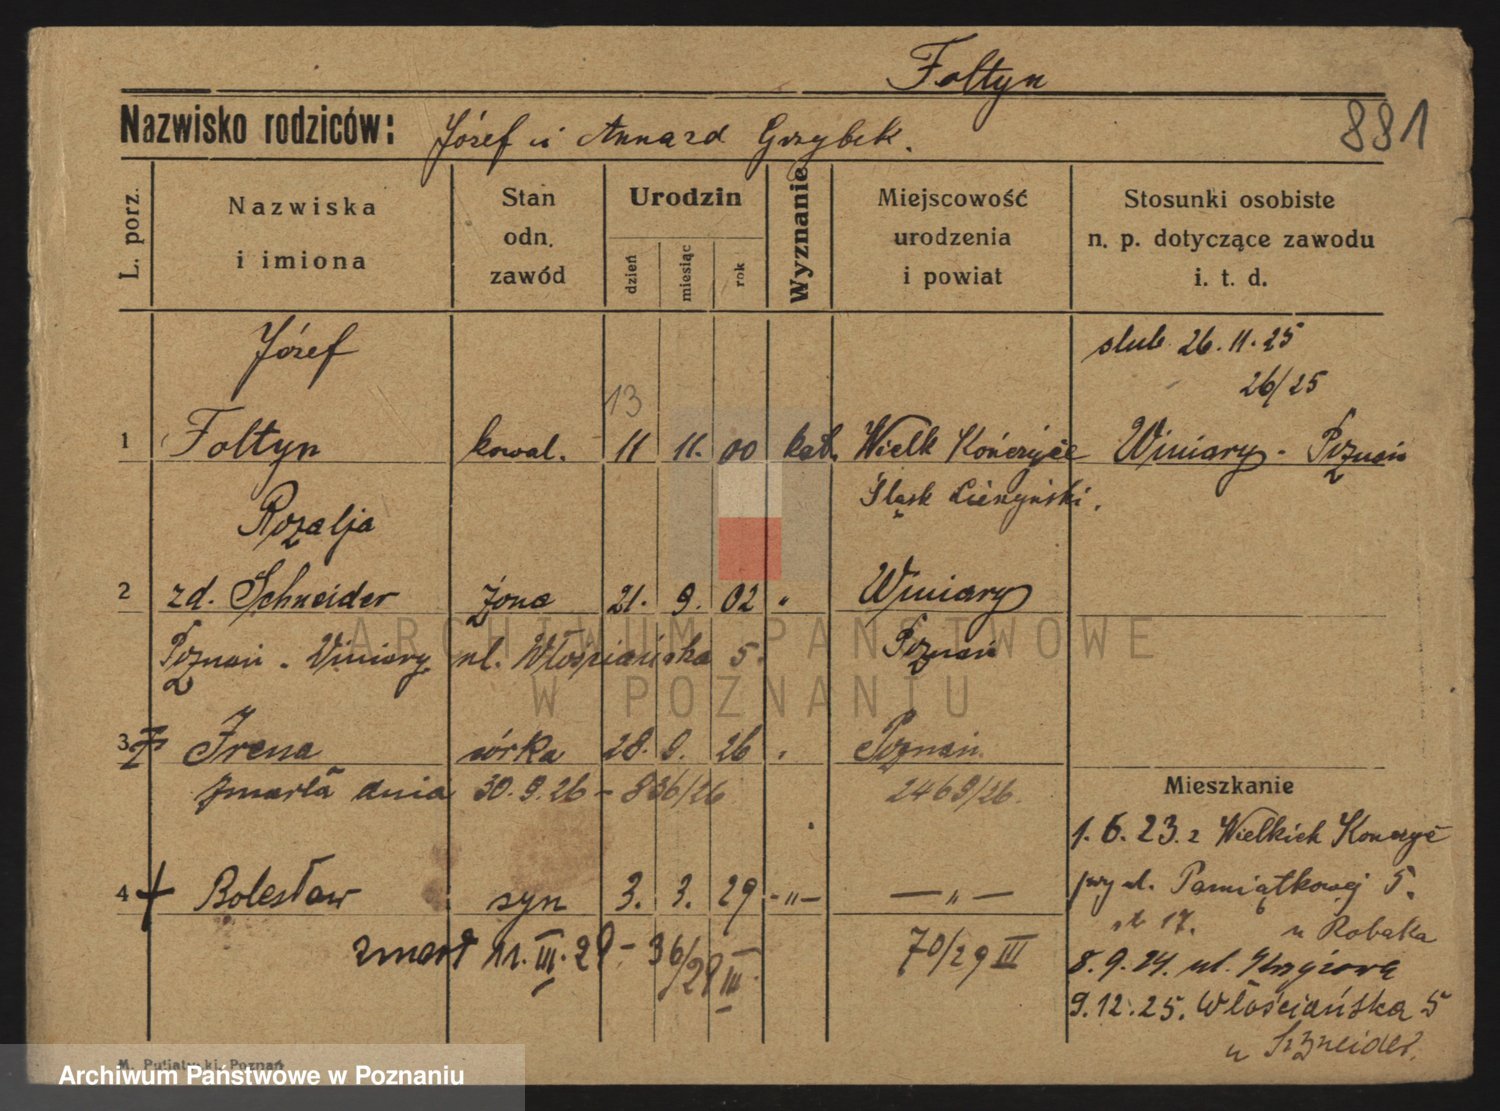 Foltyn
881
Nazwisko rodziców: Józef i Anna zd Grzybek.
L. porz. Nazwiska i imiona Stan odn. zawód Urodzin dzień miesiąc rok Wyznanie Miejscowość urodzenia i powiat Stosunki osobiste n. p. dotyczące zawodu i. t. d.
Józef ślub 26.11.25
13 26/25
1 Foltyn kowal. 11 11. 00 kat. Wielk Kończyce Winiary - Poznań
Śląsk Cieszyński.
Rozalja
2 zd. Schneider żona 21. 9. 02 " Winiary
Poznań - Winiary ul. Włościańska 5. Poznań
3 Irena córka 28. 9. 26 " Poznań
zmarła dnia 30.9.26 - 836/26 2469/26.
Mieszkanie
1.6.23. z Wielkich Kończyc
4 Bolesław syn 3. 3. 29 -"- — " —
przy ul. Pamiątkowej 5.
17. u Robaka
zmarł 11.III.29 - 36/29 III 70/29 III
8.9.24. ul.
9.12.25. Włościańska 5
u Szneider.
M. Putiatycki, Poznań
ARCHIWUM PAŃSTWOWE
W POZNANIU
Archiwum Państwowe w Poznaniu